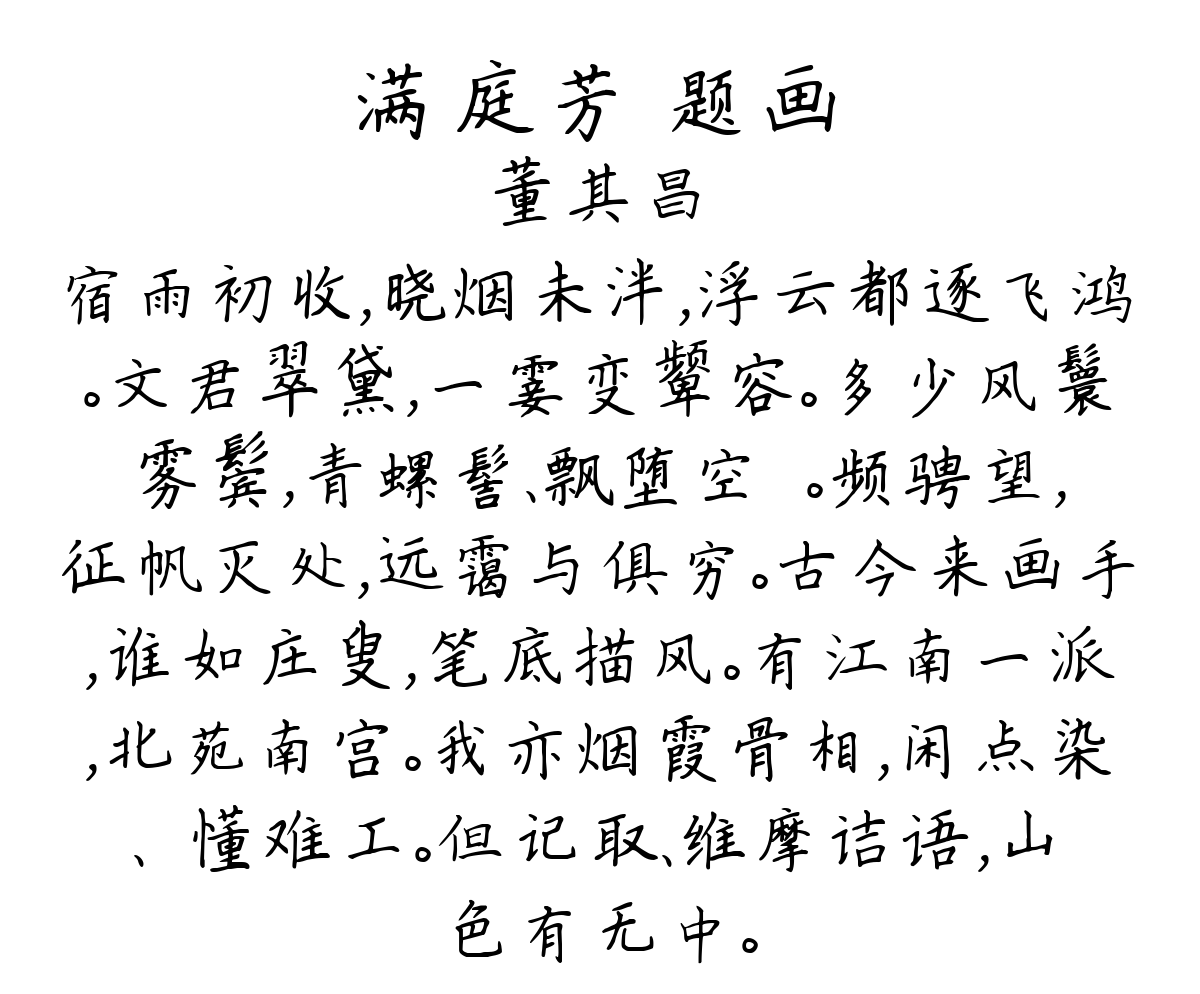 满庭芳 题画
董其昌
宿雨初收,晓烟未泮,浮云都逐飞鸿
。文君翠黛,一霎变颦容。多少风鬟
雾鬓,青螺髻、飘堕空 。频骋望,
征帆灭处,远霭与俱穷。古今来画手
,谁如庄叟,笔底描风。有江南一派
,北苑南宫。我亦烟霞骨相,闲点染
、 懂难工。但记取、维摩诘语,山
色有无中。